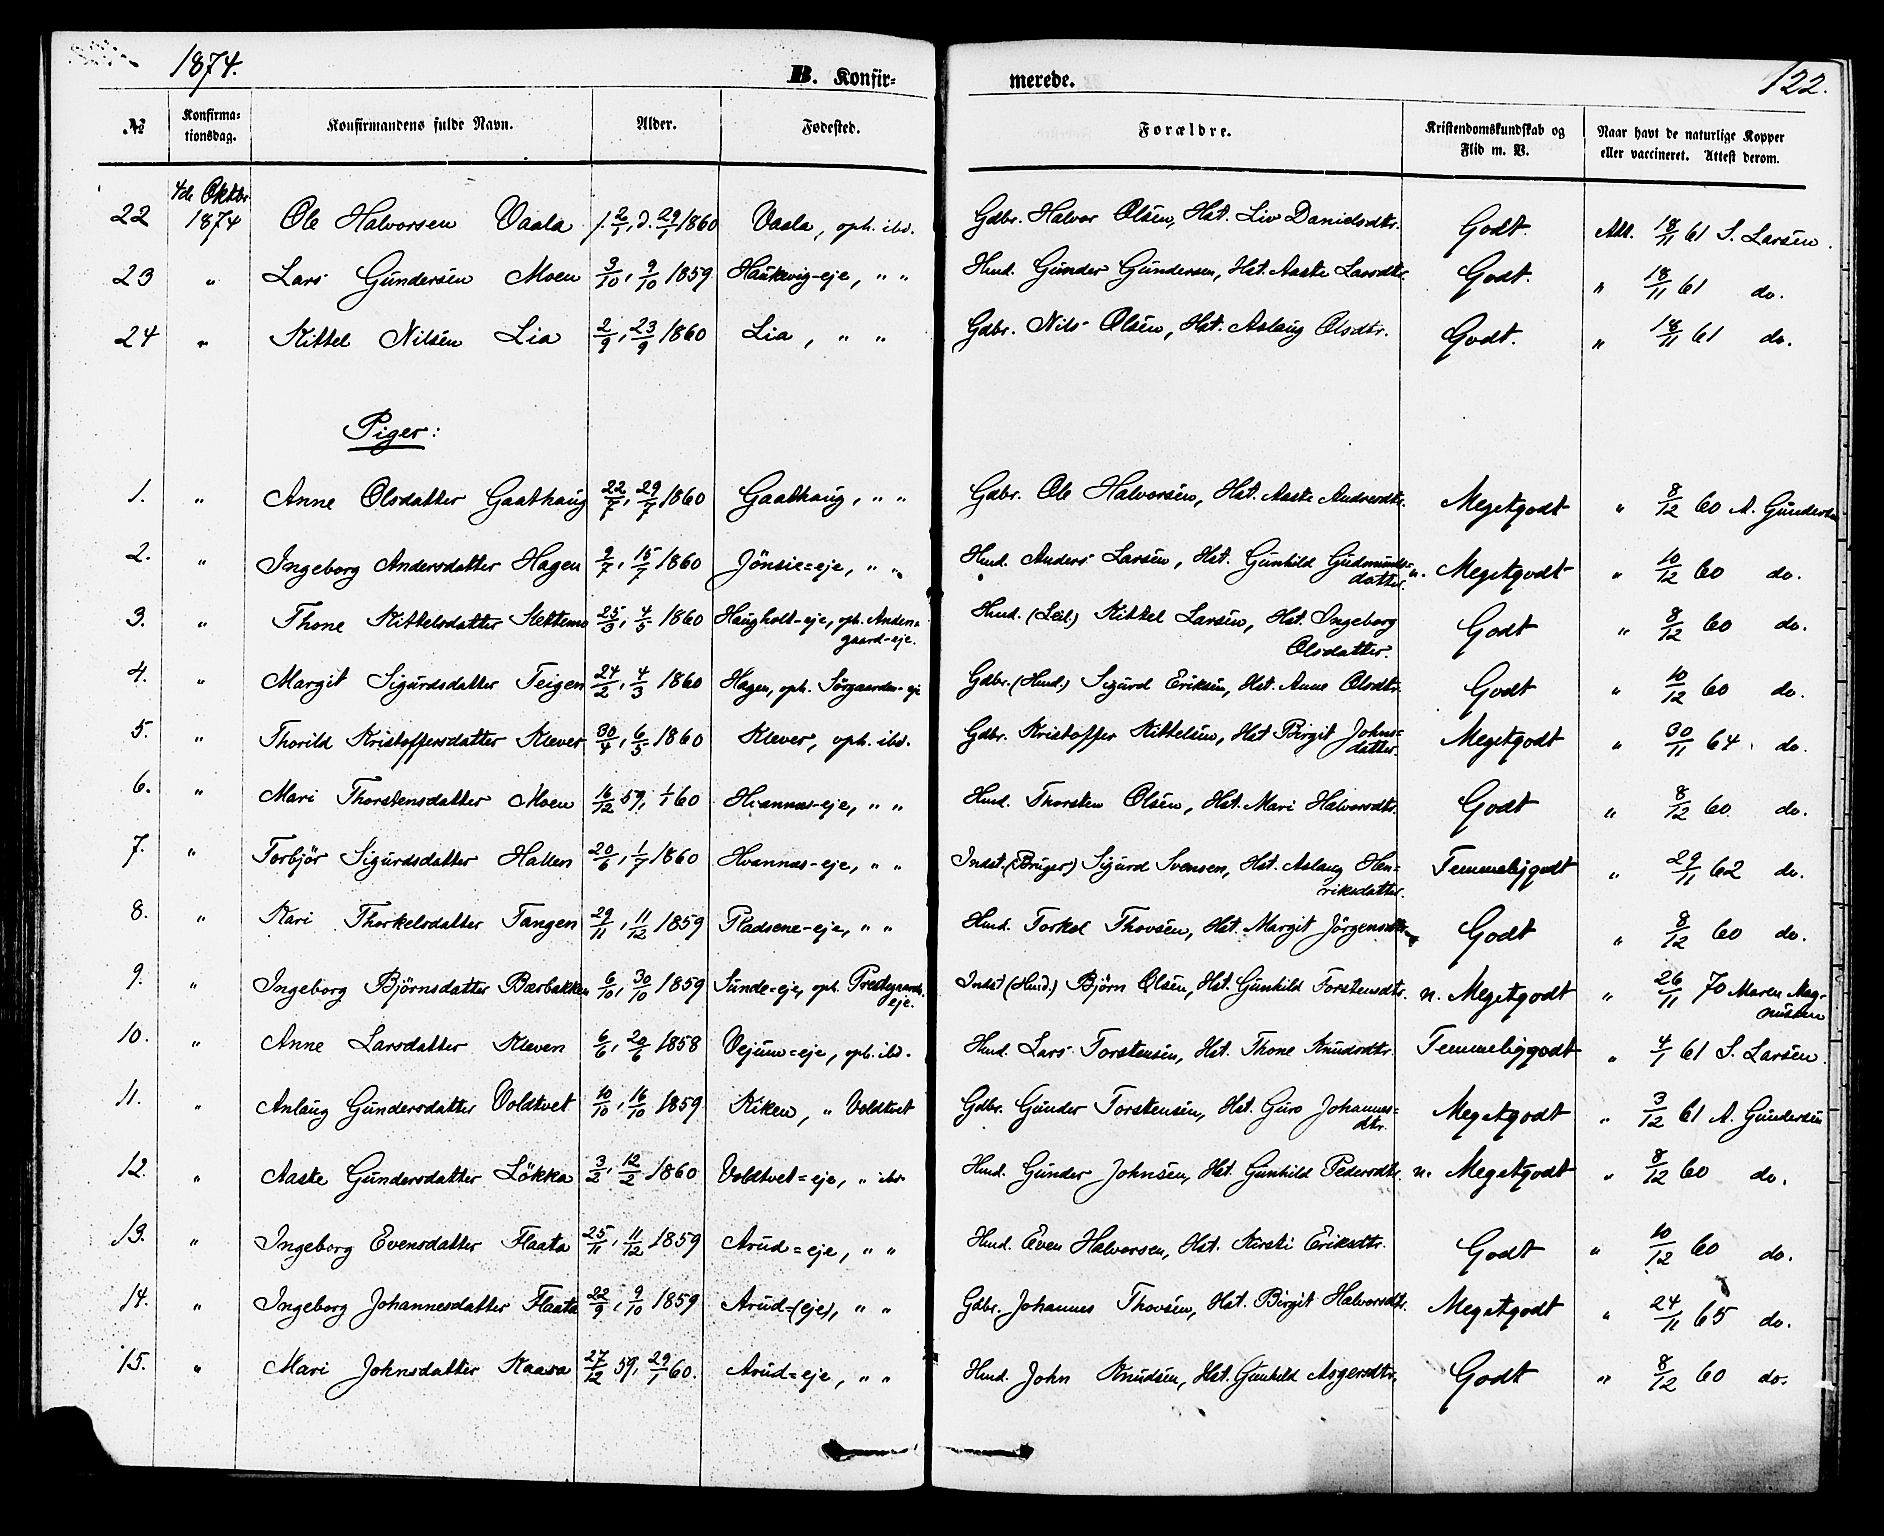 1874.
B. Konfir-
merede.
122.
№ Konfirma-
tionsdag. Konfirmandens fulde Navn. Alder. Fødested. Forældre. Kristendomskundskab og
Flid m. V. Naar havt de naturlige Kopper
eller vaccineret. Attest derom.
4de Oktbr
22 1874 Ole Halvorsen Vaala f. 2/1, d. 29/1 1860 Vaala, oph. ibd. Gdbr. Halvor Olsen, Hst. Liv Danielsdtr. Godt. Att. 18/11 61 S. Larsen.
23 " Lars Gundersen Moen 3/10, 9/10 1859 Haukevig-eje, " " Hmd. Gunder Gundersen, Hst. Aaste Larsdtr. Godt. " 18/11 61 do.
24 " Kittel Nilsen Lia 2/9, 23/9 1860 Lia, " " Gdbr. Nils Olsen, Hst. Aslaug Olsdtr. Godt. " 18/11 61 do.
Piger:
1. " Anne Olsdatter Gaathaug 22/7, 29/7 1860 Gaathaug, " " Gdbr. Ole Halvorsen, Hst. Aaste Andresdtr. Megetgodt " 8/12 60 A. Gundersen
2. " Ingeborg Andersdatter Hagen 9/7, 15/7 1860 Jönsie=eje, " " Hmd. Anders Larsen, Hst. Gunhild Gudmunds=
datter. n. Megetgodt " 10/12 60 do.
3. " Thone Kittelsdatter Slettemo 25/3, 4/5 1860 Haugholt-eje, oph. Anden=
gaard-eje. Hmd. (Leil.) Kittel Larsen, Hst. Ingeborg
Olsdatter. Godt " 8/12 60 do.
4. " Margit Sigurdsdatter Teigen 24/2, 4/3 1860 Hagen, oph. Sörgaarden-eje Gdbr. (Hmd.) Sigurd Eriksen, Hst. Anne Olsdtr. Godt " 10/12 60 do.
5. " Thorild Kristoffersdatter Klever 30/4, 6/5 1860 Klever, oph. ibd. Gdbr. Kristoffer Kittelsen, Hst Birgit Johns=
datter. Megetgodt " 30/11 64 do.
6. " Mari Thorstensdatter Moen 16/12 59, 1/1 60 Hvannas-eje, " " Hmd. Thorsten Olsen, Hst. Mari Halvorsdtr. Godt " 8/12 60 do.
7. " Torbjör Sigurdsdatter Hallen 20/6, 1/7 1860 Hvannas-eje, " " Indst. (Bruger) Sigurd Svensen, Hst. Aslaug Hen-
riksdatter. Temmeligodt " 29/11 62 do.
8. " Kari Thorkelsdatter Tangen 29/11, 11/12 1859 Pladsene-eje, " " Hmd. Torkel Thovsen, Hst. Margit Jörgensdtr. Godt " 8/12 60 do.
9. " Ingeborg Björnsdatter Bærbakken 6/10, 30/10 1859 Sunde=eje, oph. Prestegaards-
eje. Indst (Hmd.) Björn Olsen, Hst. Gunhild Torstensdtr. n. Megetgodt " 26/11 70 Maren Mag-
nussen
10. " Anne Larsdatter Kleven 6/6, 20/6 1858 Vejum=eje, oph. ibd. Hmd. Lars Torstensen, Hst. Thone Knudsdtr. Temmeliggodt " 4/1 61 S. Larsen.
11. " Anlaug Gundersdatter Voldtvet 10/10, 16/10 1859 Kiken, " Voldtvet Gdbr. Gunder Torstensen, Hst. Guro Johannes=
dtr. Megetgodt " 3/12 61 A. Gundersen
12. " Aaste Gundersdatter Lökka 3/2, 12/2 1860 Voldtvet=eje, " ibd Hmd. Gunder Johnsen, Hst. Gunhild Pedersdtr. n. Megetgodt " 8/12 60 do.
13. " Ingeborg Evensdatter Flaata 25/11, 11/12 1859 Aarud=eje, " " Hmd. Even Halvorsen, Hst. Kirsti Eriksdtr. Godt " 10/12 60 do.
14. " Ingeborg Johannesdatter Flaata 22/9, 9/10 1859 Aarud=(eje), " " Gdbr. Johannes Thovsen, Hst. Birgit Halvorsdtr. Megetgodt " 24/11 65 do.
15. " Mari Johnsdatter Kaasa 27/12 59, 29/1 60. Aarud=eje, " " Hmd. John Knudsen, Hst. Gunhild Asgersdtr. Godt " 8/12 60 do.